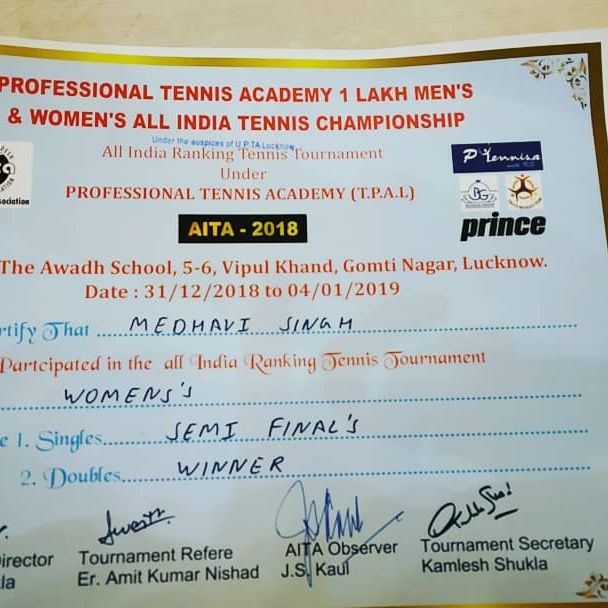 PROFESSIONAL TENNIS ACADEMY 1 LAKH MEN'S
& WOMEN'S ALL INDIA TENNIS CHAMPIONSHIP
Under the auspices of U.P.TA Lucknow
All India Ranking Tennis Tournament
Under
PROFESSIONAL TENNIS ACADEMY (T.P.A.L)
sociation
P'Tennisa
prince
AITA - 2018
The Awadh School, 5-6, Vipul Khand, Gomti Nagar, Lucknow.
Date : 31/12/2018 to 04/01/2019
rtify That MEDHAVI SINGH
Partcipated in the all India Ranking Tennis Tournament
WOMENS'S
e 1. Singles SEMI FINAL'S
2. Doubles WINNER
irector
la
Tournament Refere
Er. Amit Kumar Nishad
AITA Observer
J.S. Kaul
Tournament Secretary
Kamlesh Shukla